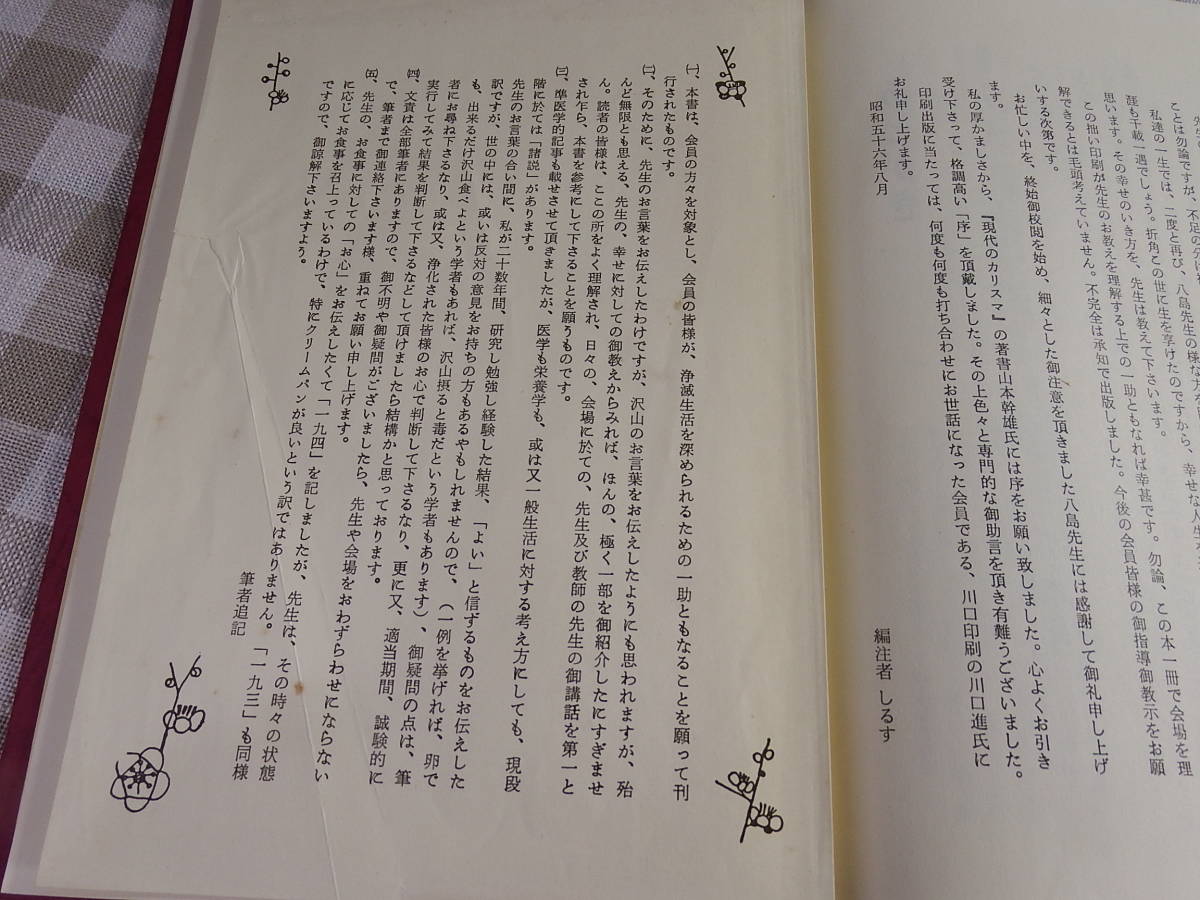 ことは勿論ですが、不足の分は
私達の一生では、二度と再び、八島先生の様な
涯も千載一遇でしょう。折角この世に生を享けたのですから、幸せな人生を
思います。その幸せのいき方を、先生は教えて下さいます。
この拙い印刷が先生のお教えを理解する上での一助ともなれば幸甚です。勿論、この本一冊で会場を理
解できるとは毛頭考えていません。不完全は承知で出版しました。今後の会員皆様の御指導御教示をお願
いする次第です。
お忙しい中を、終始御校閲を始め、細々とした御注意を頂きました八島先生には感謝して御礼申し上げ
ます。
私の厚かましさから、『現代のカリスマ』の著書山本幹雄氏には序をお願い致しました。心よくお引き
受け下さって、格調高い「序」を頂戴しました。その上色々と専門的な御助言を頂き有難うございました。
印刷出版に当たっては、何度も何度も打ち合わせにお世話になった会員である、川口印刷の川口進氏に
お礼申し上げます。
昭和五十六年八月
編注者 しるす
㈠、本書は、会員の方々を対象とし、会員の皆様が、浄滅生活を深められるための一助ともなることを願って刊
行されたものです。
㈡、そのために、先生のお言葉をお伝えしたわけですが、沢山のお言葉をお伝えしたようにも思われますが、殆
んど無限とも思える、先生の、幸せに対しての御教えからみれば、ほんの、極く一部を御紹介したにすぎませ
ん。読者の皆様は、ここの所をよく理解され、日々の、会場に於ての、先生及び教師の先生の御講話を第一と
され乍ら、本書を参考にして下さることを願うものです。
㈢、準医学的記事も載せさせて頂きましたが、医学も栄養学も、或は又一般生活に対する考え方にしても、現段
階に於ては「諸説」があります。
先生のお言葉の合い間に、私が二十数年間、研究し勉強し経験した結果、「よい」と信ずるものをお伝えした
訳ですが、世の中には、或いは反対の意見をお持ちの方もあるやもしれませんので、(一例を挙げれば、卵で
も、出来るだけ沢山食べよという学者もあれば、沢山摂ると毒だという学者もあります)、御疑問の点は、筆
者にお尋ね下さるなり、或は又、浄化された皆様のお心で判断して下さるなり、更に又、適当期間、誠験的に
実行してみて結果を判断して下さるなどして頂けましたら結構かと思っております。
㈣、文責は全部筆者にありますので、御不明や御疑問がございましたら、先生や会場をおわずらわせにならない
で、筆者まで御連絡下さいます様、重ねてお願い申し上げます。
㈤、先生の、お食事に対しての「お心」をお伝えしたくて「一九四」を記しましたが、先生は、その時々の状態
に応じてお食事を召上っているわけで、特にクリームパンが良いという訳ではありません。「一九三」も同様
ですので、御諒解下さいますよう。
筆者追記